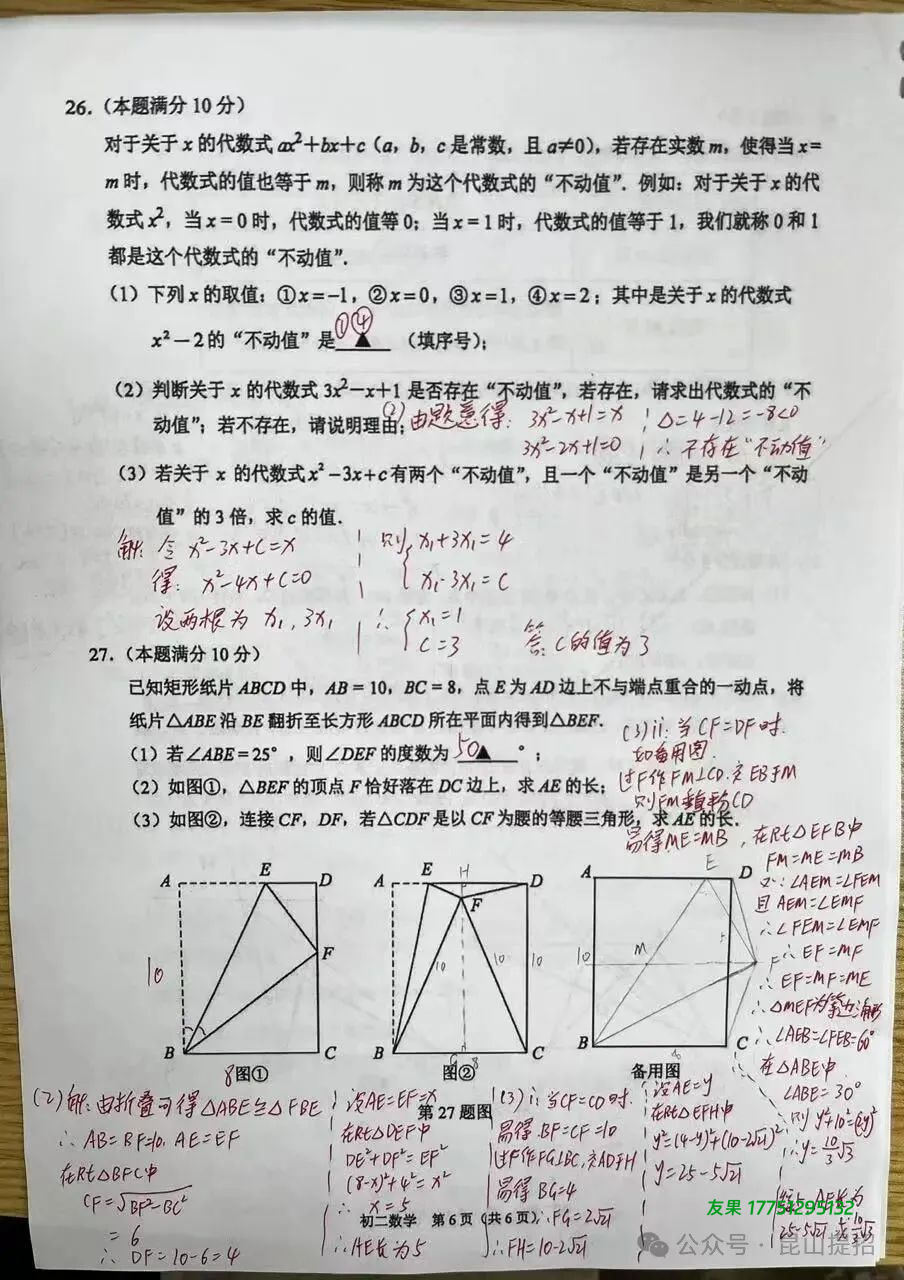 26.（本题满分 10 分）
对于关于 x 的代数式 ax²+bx+c（a，b，c 是常数，且 a≠0），若存在实数 m，使得当 x=
m 时，代数式的值也等于 m，则称 m 为这个代数式的“不动值”．例如：对于关于 x 的代
数式 x²，当 x=0 时，代数式的值等 0；当 x=1 时，代数式的值等于 1，我们就称 0 和 1
都是这个代数式的“不动值”．
（1）下列 x 的取值：①x=-1，②x=0，③x=1，④x=2；其中是关于 x 的代数式
①④
x²-2 的“不动值”是▲（填序号）；
（2）判断关于 x 的代数式 3x²-x+1 是否存在“不动值”，若存在，请求出代数式的“不
动值”；若不存在，请说明理由；
(2) 由题意得：3x²-x+1=x
3x²-2x+1=0
Δ=4-12=-8<0
∴ 不存在“不动值”
（3）若关于 x 的代数式 x²-3x+c 有两个“不动值”，且一个“不动值”是另一个“不动
值”的 3 倍，求 c 的值．
解：令 x²-3x+c=x
得：x²-4x+c=0
设两根为 x₁，3x₁
则 { x₁+3x₁=4
x₁·3x₁=c
∴ { x₁=1
c=3
答：c的值为3
27.（本题满分 10 分）
已知矩形纸片 ABCD 中，AB=10，BC=8，点 E 为 AD 边上不与端点重合的一动点，将
纸片△ABE 沿 BE 翻折至长方形 ABCD 所在平面内得到△BEF．
（1）若∠ABE=25°，则∠DEF 的度数为 50▲ °；
（2）如图①，△BEF 的顶点 F 恰好落在 DC 边上，求 AE 的长；
（3）如图②，连接 CF，DF，若△CDF 是以 CF 为腰的等腰三角形，求 AE 的长．
(3) ii：当 CF=DF 时．
如备用图．
过F作FM⊥CD．交EB于M
则FM垂直平分CD
易得ME=MB，在Rt△EFB中
FM=ME=MB
又∵∠AEM=∠FEM
且 AEM=∠EMF
∴∠FEM=∠EMF
∴ EF=MF
∴ EF=MF=ME
∴ △MEF为等边三角形
∴ ∠AEB=∠FEB=60°
在△ABE中
∠ABE=30°
则 y²+10²=(2y)²
∴ y=10/3√3
综上 AE长为
25-5√21 或 10/3√3
A E D
F
10
B C
8
图①
A E H D
F
10 10 10
B G 8 C
图②
A E D
M 5 F
B 8 C
备用图
第 27 题图
(2) 解：由折叠可得△ABE≌△FBE
∴ AB=BF=10，AE=EF
在Rt△BFC中
CF=√BF²-BC²
=6
∴ DF=10-6=4
设AE=EF=x
在Rt△DEF中
DE²+DF²=EF²
(8-x)²+4²=x²
∴ x=5
∴ AE长为5
(3) i：当CF=CD时．
易得 BF=CF=10
过F作FG⊥BC，交AD于H
易得 BG=4
∴ FG=2√21
∴ FH=10-2√21
设AE=y
在Rt△EFH中
y²=(4-y)²+(10-2√21)²
y=25-5√21
初二数学 第 6 页（共 6 页）
友果 17751295132
公众号 · 昆山提招